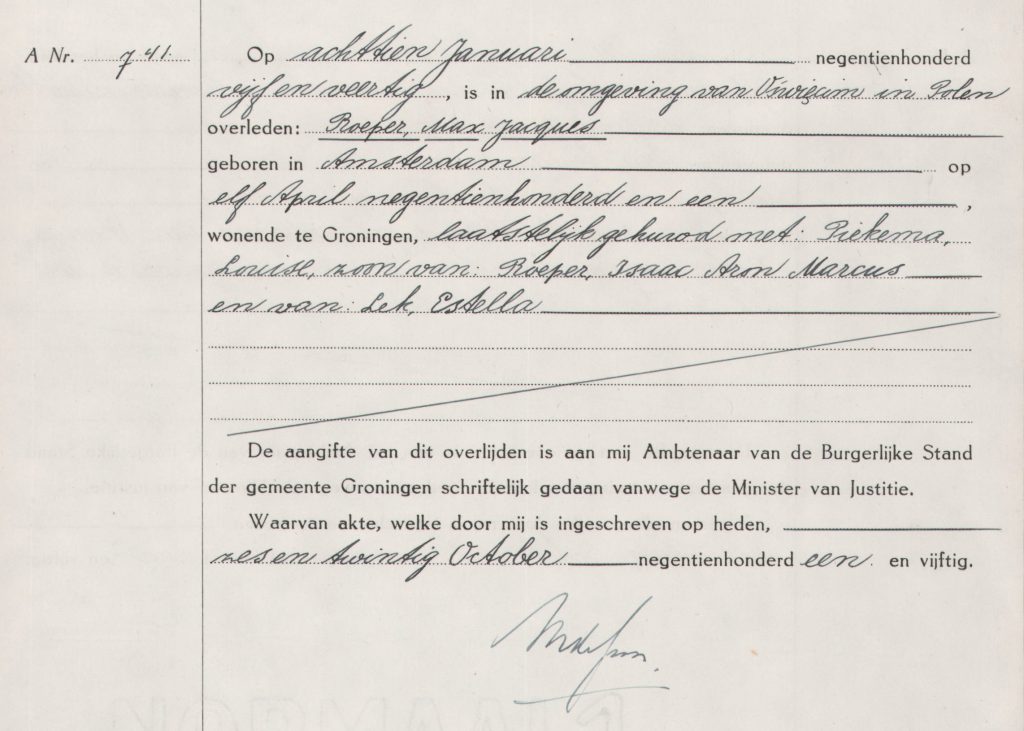 A Nr. 741. Op achttien Januari negentienhonderd
vijf en veertig, is in de omgeving van Oświęcim in Polen
overleden: Roeper, Max Jacques
geboren in Amsterdam op
elf April negentienhonderd en een,
wonende te Groningen, laatstelijk gehuwd met: Piekema,
Louise, zoon van: Roeper, Isaac Aron Marcus
en van: Lek, Estella
De aangifte van dit overlijden is aan mij Ambtenaar van de Burgerlijke Stand
der gemeente Groningen schriftelijk gedaan vanwege de Minister van Justitie.
Waarvan akte, welke door mij is ingeschreven op heden,
zes en twintig October negentienhonderd een en vijftig.